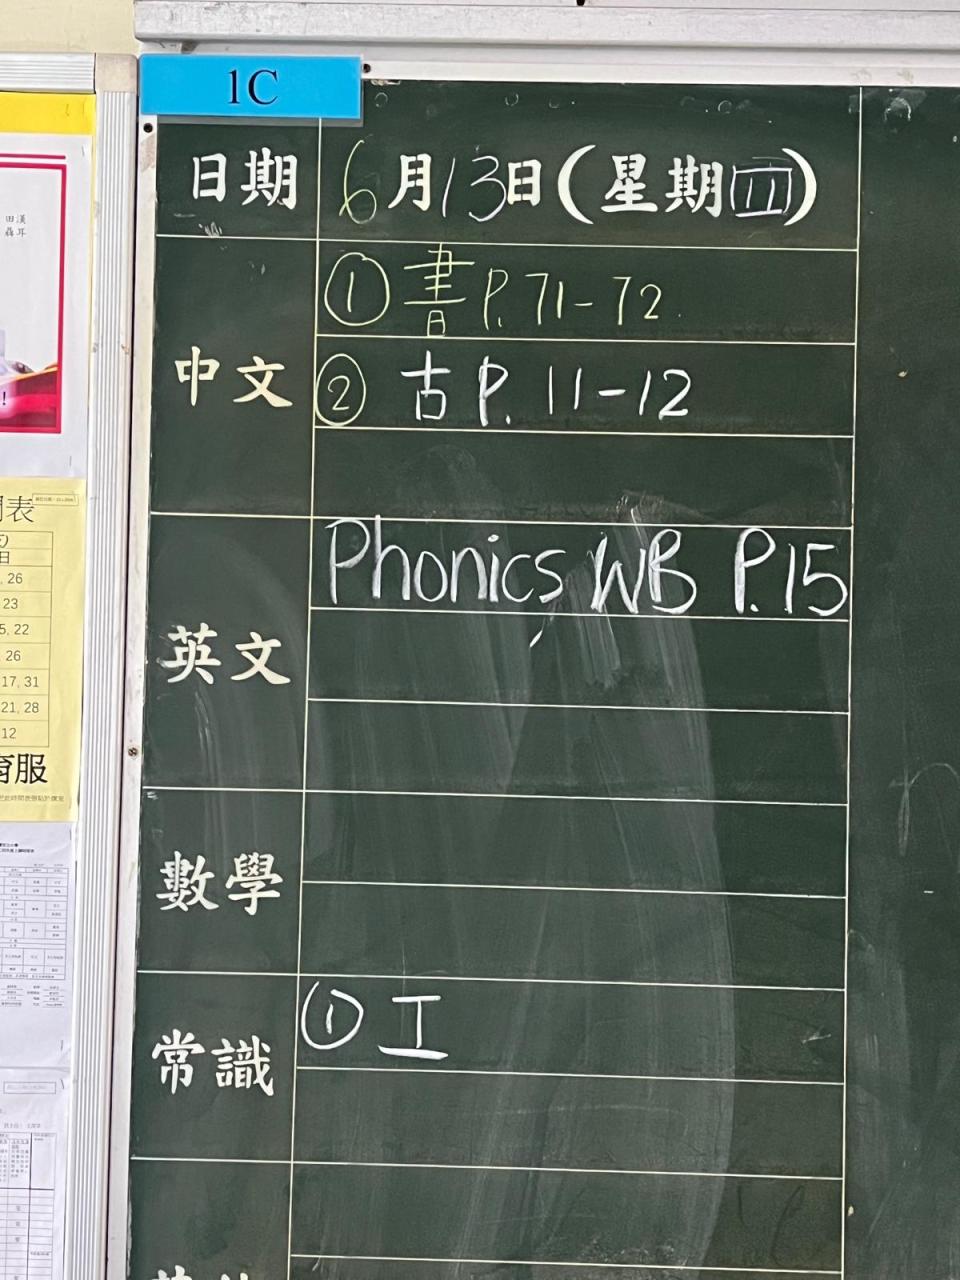 1C
日期 6月13日(星期四)
中文
① 書 P. 71-72
② 古 P. 11-12
英文
Phonics WB P.15
數學
常識
① 工
田漢
聶耳
表
日
, 26
23
5, 22
, 26
17, 31
21, 28
12
育服